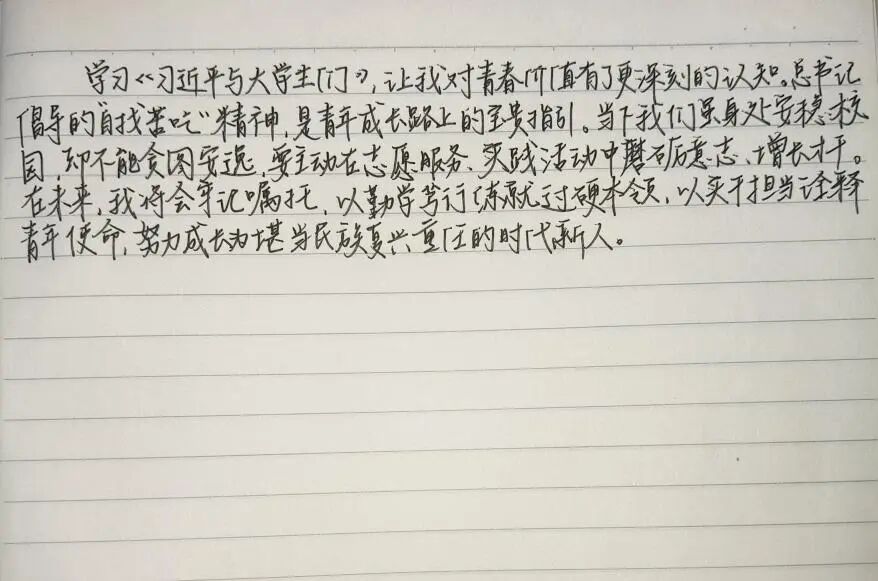 学习《习近平与大学生们》,让我对青春价值有了更深刻的认知。总书记
倡导的"自找苦吃"精神,是青年成长路上的宝贵指引。当下我们虽身处安稳校
园,却不能贪图安逸,要主动在志愿服务、实践活动中磨砺意志、增长才干。
在未来,我将会牢记嘱托,以勤学笃行练就过硬本领,以实干担当诠释
青年使命,努力成长为堪当民族复兴重任的时代新人。